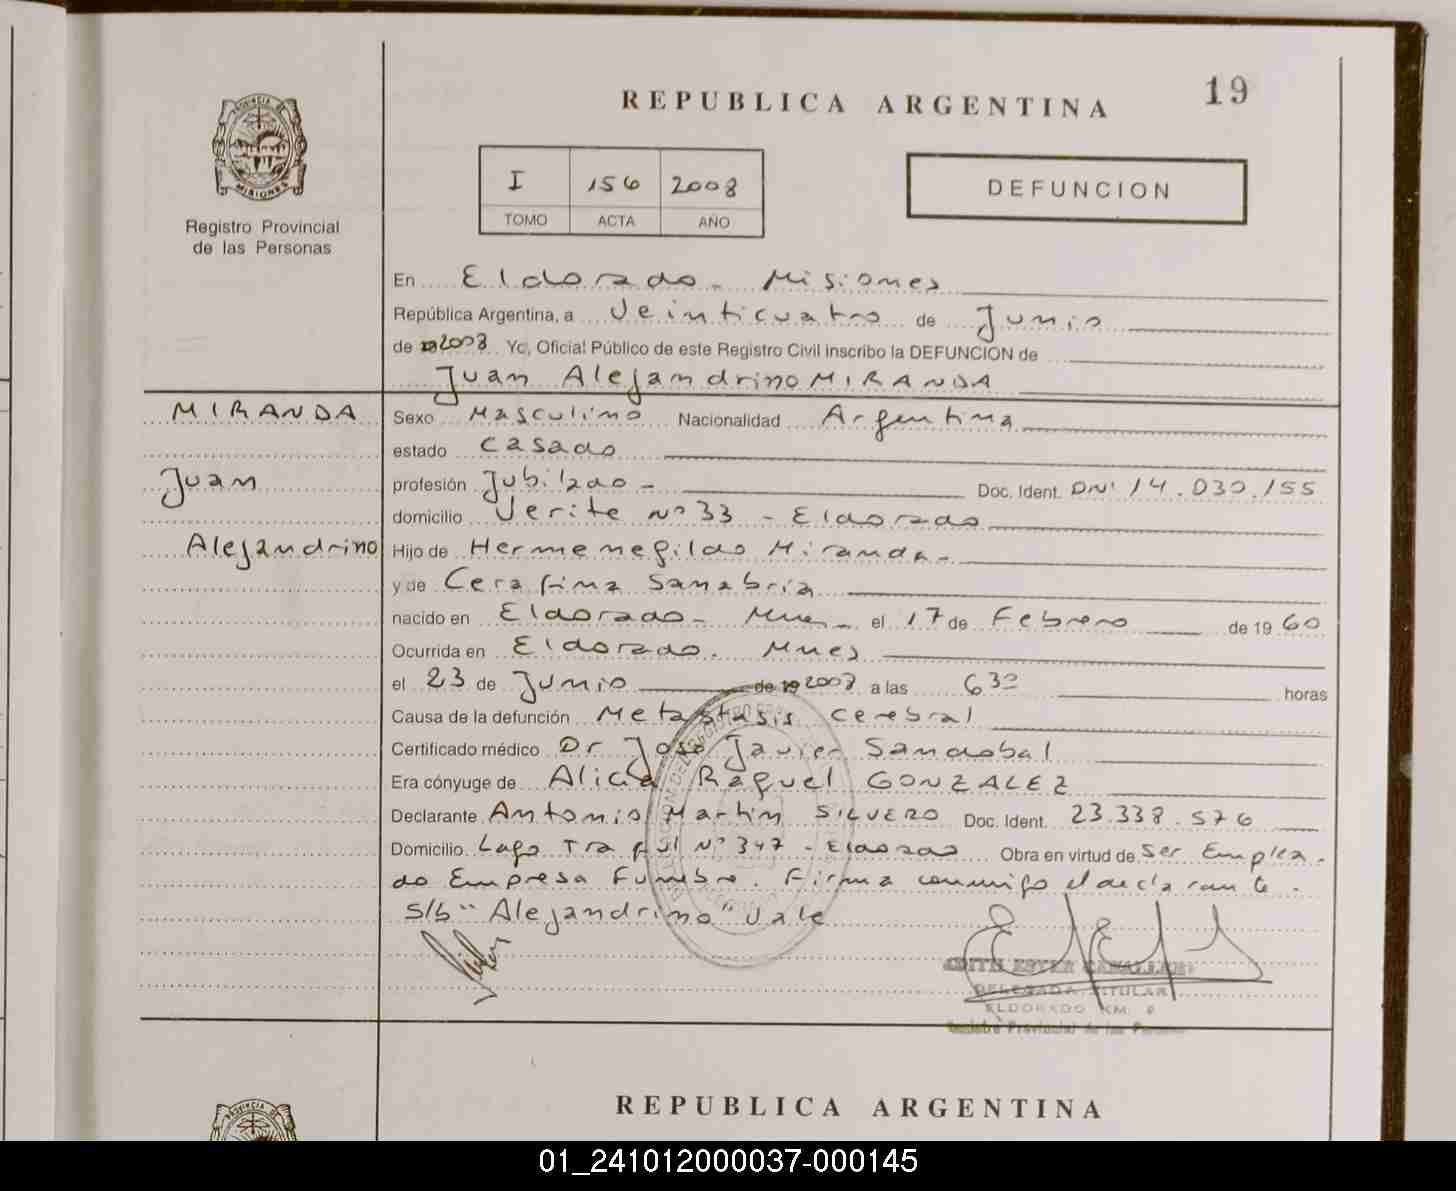 19
REPUBLICA ARGENTINA
PROVINCIA DE
MISIONES
Registro Provincial
de las Personas
I 156 2008
TOMO ACTA AÑO
DEFUNCION
En Eldorado - Misiones
República Argentina, a Veinticuatro de Junio
de 2008 Yo, Oficial Público de este Registro Civil inscribo la DEFUNCION de
Juan Alejandrino MIRANDA
MIRANDA
Juan
Alejandrino
Sexo Masculino Nacionalidad Argentina
estado Casado
profesión Jubilado - Doc. Ident. DNI 14.030.155
domicilio Verite Nº 33 - Eldorado
Hijo de Hermenegildo Miranda -
y de Cerafina Sanabria
nacido en Eldorado - Mnes - el 17 de Febrero de 1960
Ocurrida en Eldorado. Mnes
el 23 de Junio de 2008 a las 6 30 horas
Causa de la defunción Metastasis cerebral
Certificado médico Dr José Javier Sandobal
Era cónyuge de Alicia Raquel GONZALEZ
Declarante Antonio Martin SILVERO Doc. Ident. 23.338.576
Domicilio Lago Traful Nº 347 - Eldorado Obra en virtud de Ser Emplea-
do Empresa Funebre. Firma conmigo el declarante.
S/b "Alejandrino" Vale
DELEGADA TITULAR
ELDORADO KM. 9
Registro Provincial de las Personas
REPUBLICA ARGENTINA
PROVINCIA DE
01_241012000037-000145